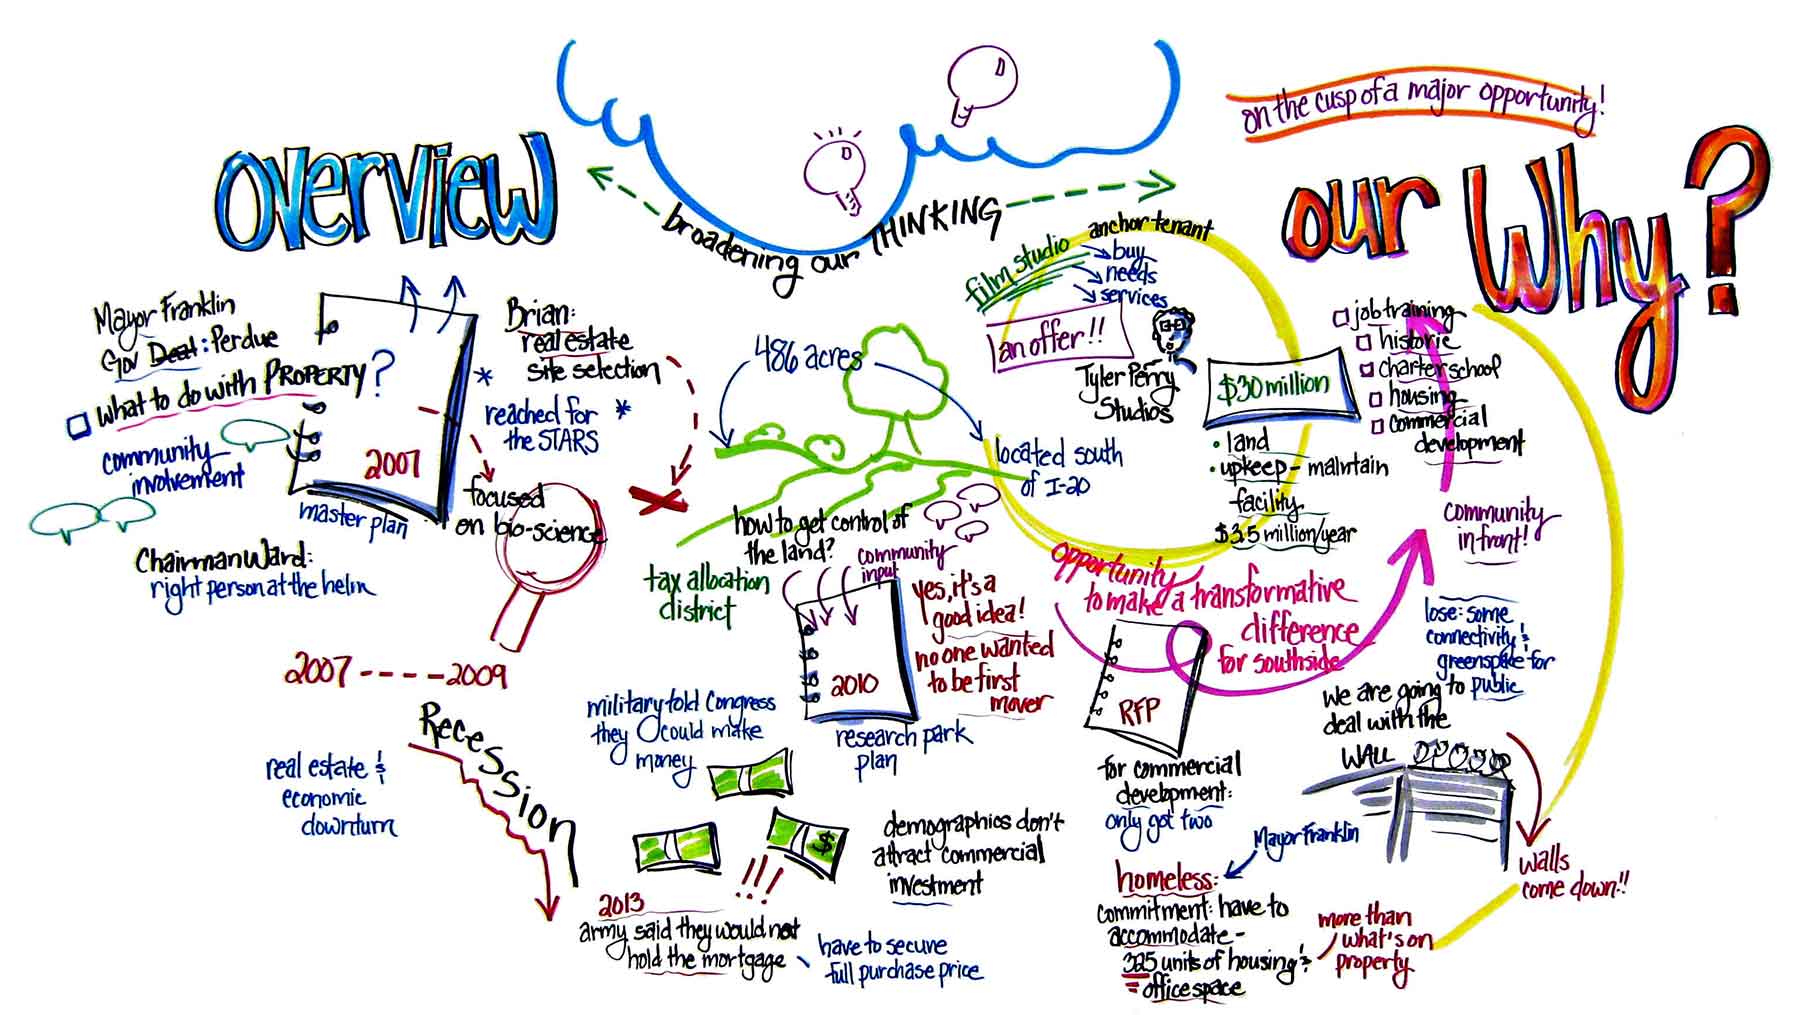 overview
Mayor Franklin
Gov Deal: Perdue
what to do with PROPERTY?
community
involvement
2007
master plan
Chairman Ward:
right person at the helm
Brian:
real estate
site selection
reached for
the STARS
focused
on bio-science
2007 ---- 2009
Recession
real estate &
economic
downturn
broadening our THINKING
486 acres
located south
of I-20
how to get control of
the land?
community
input
tax allocation
district
2010
research park
plan
yes, it's a
good idea!
no one wanted
to be first
mover
military told Congress
they could make
money
$
!!!
demographics don't
attract commercial
investment
2013
army said they would not
hold the mortgage
have to secure
full purchase price
film studio
anchor tenant
buy
needs
services
an offer!!
Tyler Perry
Studios
$30 million
land
upkeep - maintain
facility
$3.5 million/year
opportunity
to make a transformative
difference
for southside
RFP
for commercial
development:
only got two
Mayor Franklin
homeless:
commitment: have to
accommodate -
325 units of housing &
office space
more than
what's on
property
on the cusp of a major opportunity!
our Why?
job training
historic
charter school
housing
commercial
development
community
in front!
lose: some
connectivity &
greenspace for
public
we are going to
deal with the
WALL
walls
come down!!